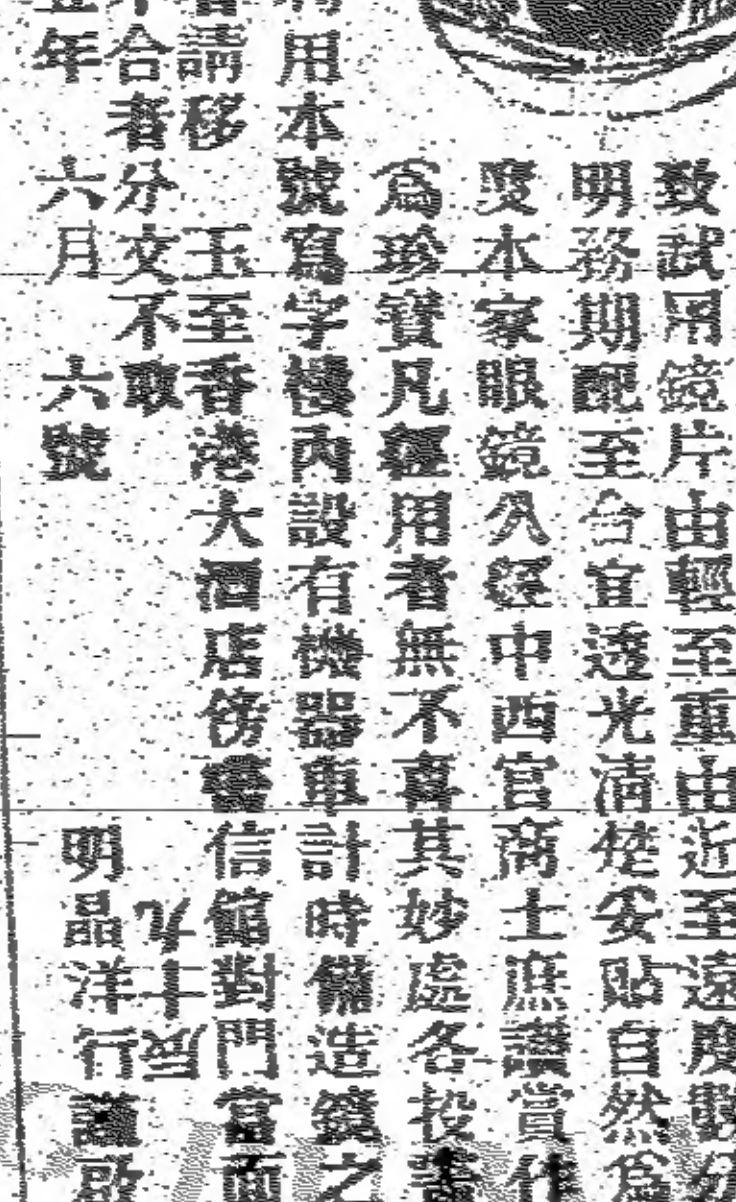 致試用鏡片由輕至重由近至遠度數分
明務期配至合宜透光清楚妥貼自然為
度本家眼鏡久經中西官商士庶讚賞作
為珍寶凡經用者無不喜其妙處各投書
用本號寫字樓內設有機器車計時儲造鏡之
請移玉至香港大酒店傍書信館對門當面
合者分文不取九十四
年六月六號明晶洋行謹啟